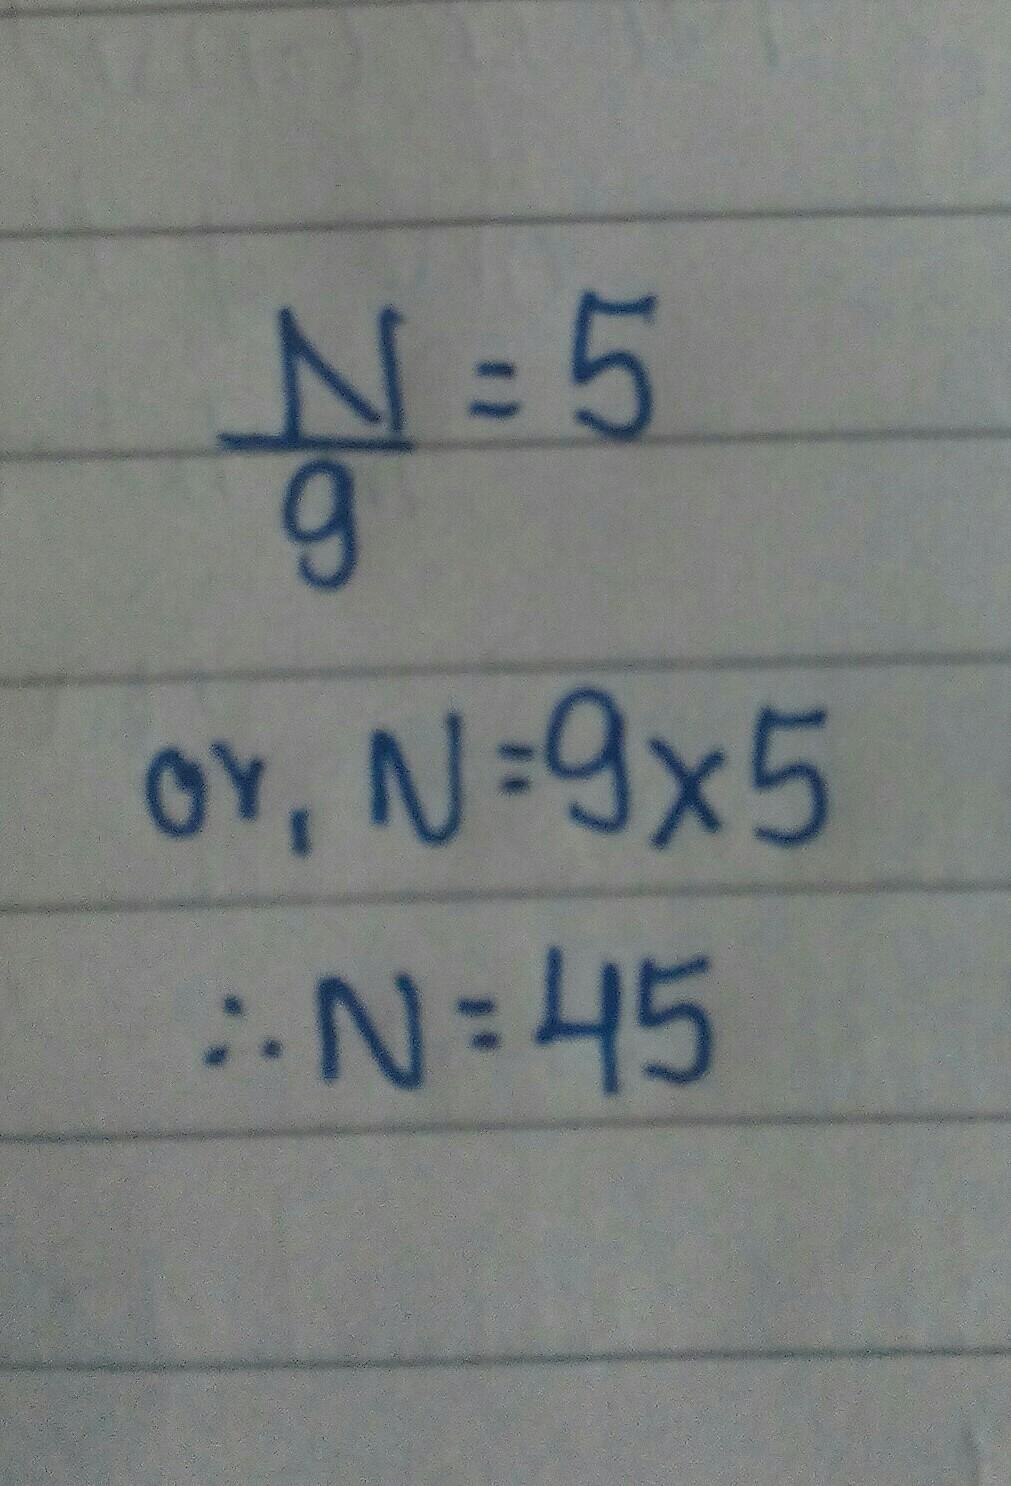 N/9 = 5
or, N = 9 x 5
∴ N = 45